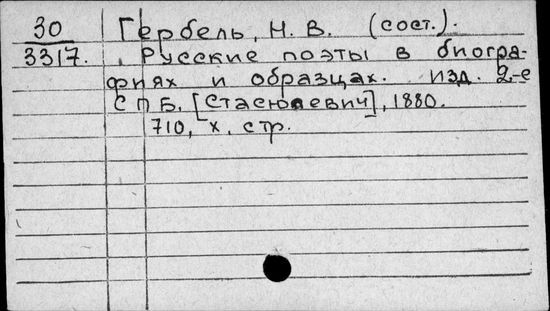 30 Гербель, Н. В. (сост.).
3317. Русские поэты в биогра-
фиях и образцах. изд. 2-е
СПБ. [Стасюлевич], 1880.
710, х, стр.